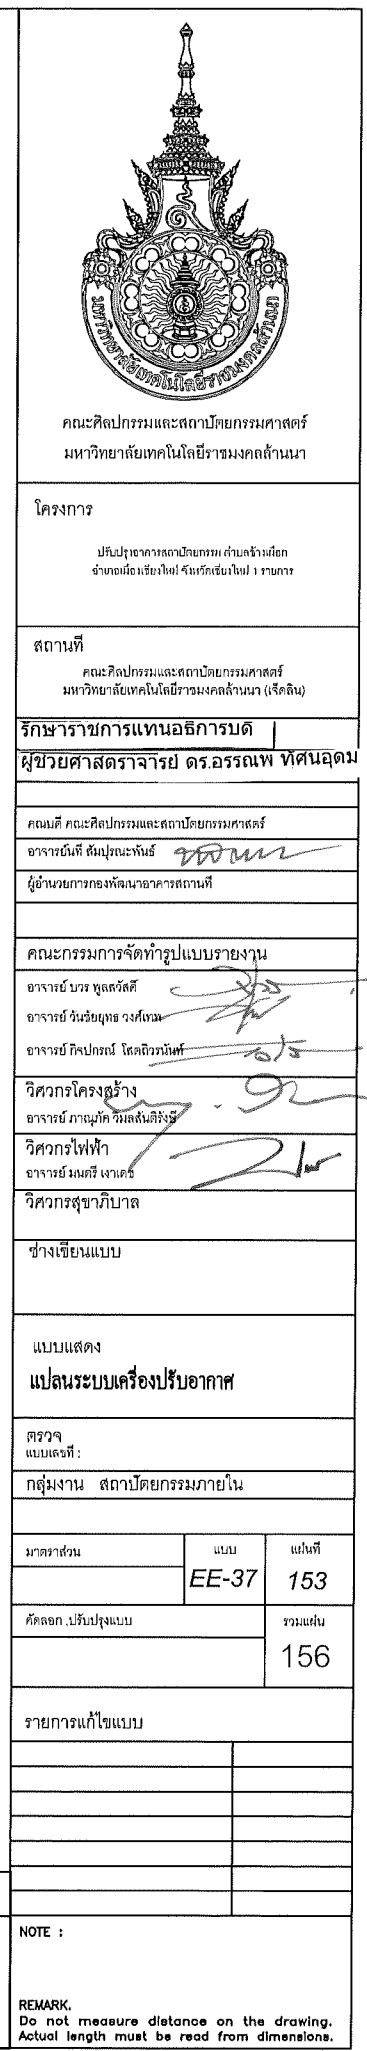 มหาวิทยาลัยเทคโนโลยีราชมงคลล้านนา
คณะศิลปกรรมและสถาปัตยกรรมศาสตร์
มหาวิทยาลัยเทคโนโลยีราชมงคลล้านนา
โครงการ
ปรับปรุงอาคารสถาปัตยกรรม ตำบลช้างเผือก
อำเภอเมืองเชียงใหม่ จังหวัดเชียงใหม่ 1 รายการ
สถานที่
คณะศิลปกรรมและสถาปัตยกรรมศาสตร์
มหาวิทยาลัยเทคโนโลยีราชมงคลล้านนา (เจ็ดลิน)
รักษาราชการแทนอธิการบดี
ผู้ช่วยศาสตราจารย์ ดร.อรรณพ ทัศนอุดม
คณบดี คณะศิลปกรรมและสถาปัตยกรรมศาสตร์
อาจารย์นที สัมปุรณะพันธ์
ผู้อำนวยการกองพัฒนาอาคารสถานที่
คณะกรรมการจัดทำรูปแบบรายงาน
อาจารย์ บวร พูลสวัสดิ์
อาจารย์ วันชัยยุทธ วงศ์เทพ
อาจารย์ กิจปกรณ์ โสตถิวรนันท์
วิศวกรโครงสร้าง
อาจารย์ ภาณุภัค วิมลสันติรังษี
วิศวกรไฟฟ้า
อาจารย์ มนตรี เงาเดช
วิศวกรสุขาภิบาล
ช่างเขียนแบบ
แบบแสดง
แปลนระบบเครื่องปรับอากาศ
ตรวจ
แบบเลขที่ :
กลุ่มงาน สถาปัตยกรรมภายใน
มาตราส่วน แบบ แผ่นที่
EE-37 153
คัดลอก ,ปรับปรุงแบบ รวมแผ่น
156
รายการแก้ไขแบบ
NOTE :
REMARK.
Do not measure distance on the drawing.
Actual length must be read from dimensions.